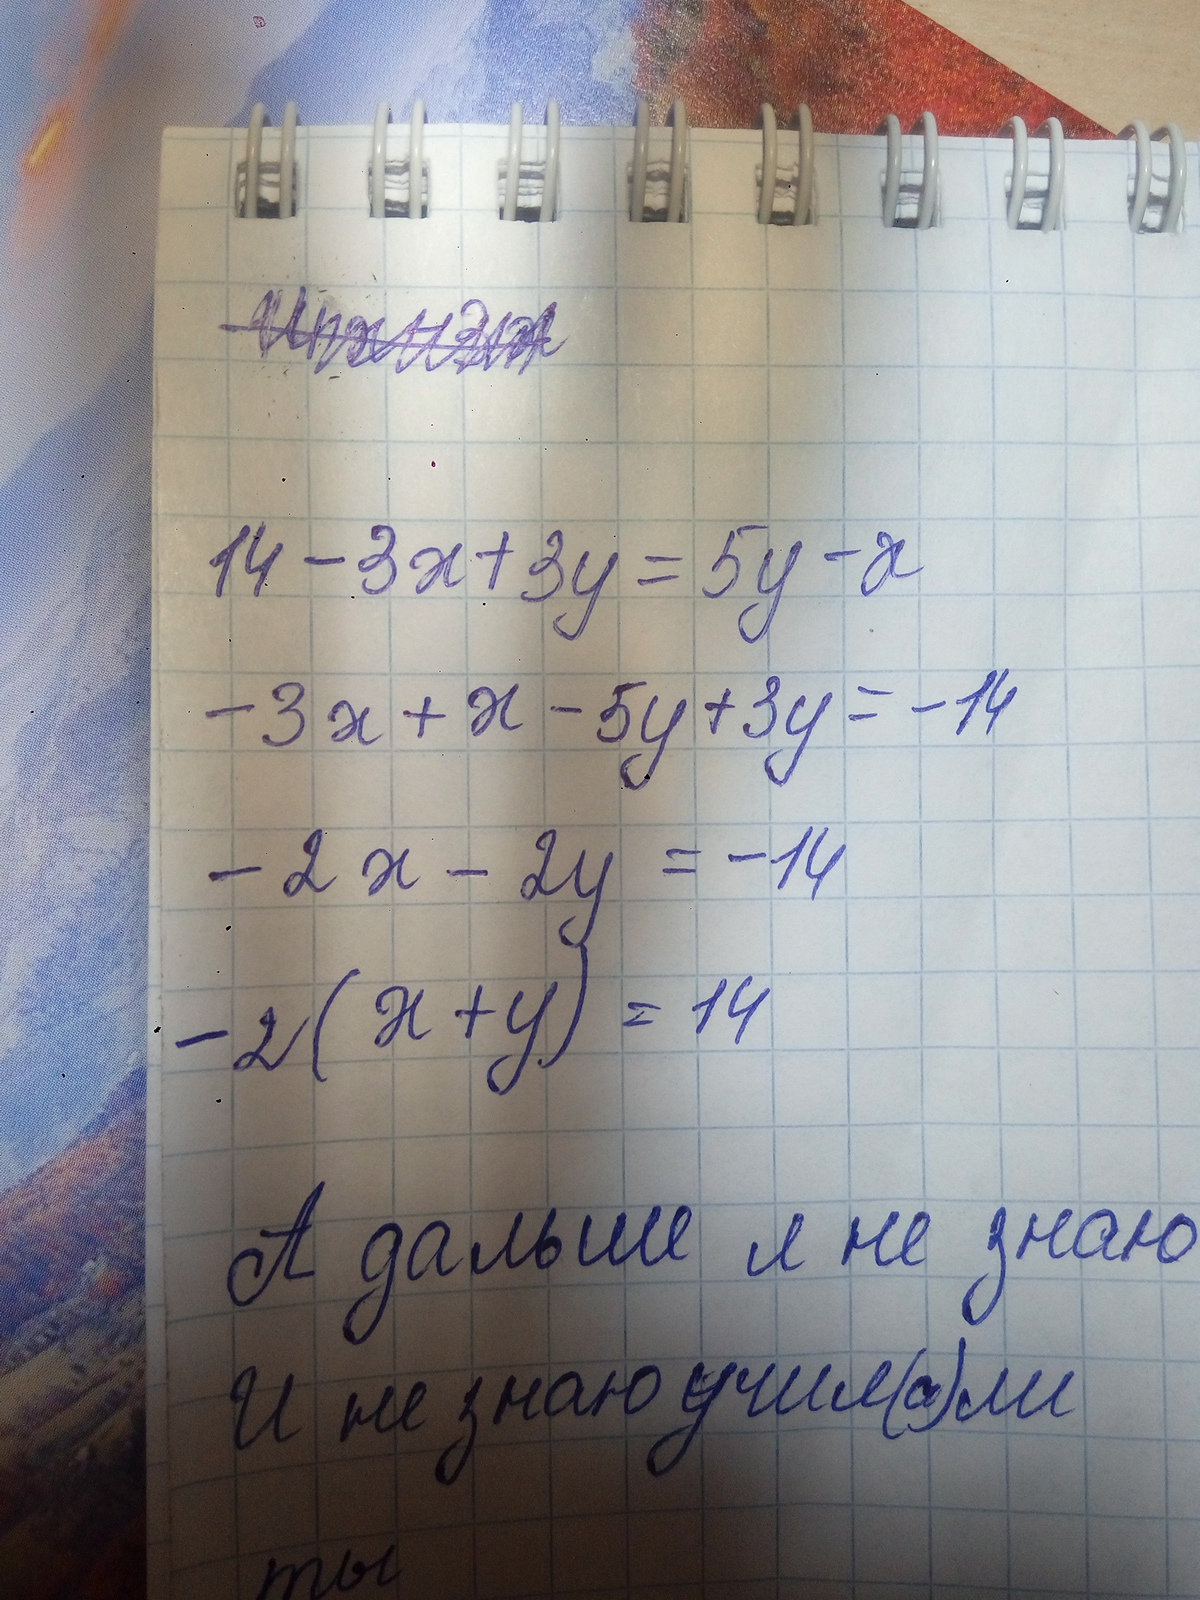 14 - 3x + 3y = 5y - x
-3x + x - 5y + 3y = -14
-2x - 2y = -14
-2(x + y) = 14
А дальше я не знаю
И не знаю учил(а) ли
ты